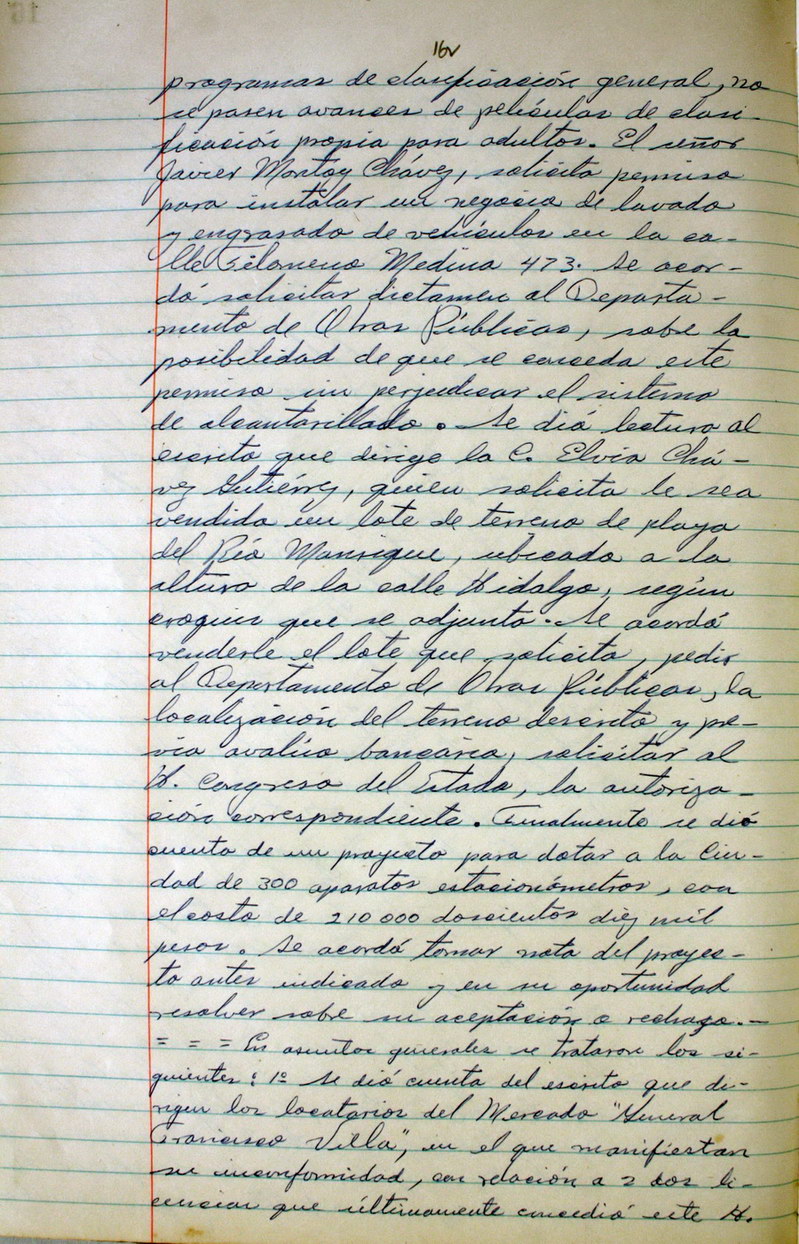 16v
programas de clasificación general, no
se pasen avances de películas de clasi-
ficación propia para adultos. El señor
Javier Montoy Chávez, solicita permiso
para instalar un negocio de lavado
y engrasado de vehículos en la ca-
lle Filomeno Medina 473. Se acor-
dó solicitar dictamen al Departa-
mento de Obras Públicas, sobre la
posibilidad de que se conceda este
permiso sin perjudicar el sistema
de alcantarillado. Se dió lectura al
escrito que dirige la C. Elvia Chá-
vez Gutiérrez, quien solicita le sea
vendido un lote de terreno de playa
del Río Manrique, ubicado a la
altura de la calle Hidalgo, según
croquis que se adjunta. Se acordó
venderle el lote que solicita, pedir
al Departamento de Obras Públicas, la
localización del terreno descrito y pre-
vio avalúo bancario, solicitar al
H. Congreso del Estado, la autoriza-
ción correspondiente. Finalmente se dió
cuenta de un proyecto para dotar a la Ciu-
dad de 300 aparatos estacionómetros, con
el costo de 210 000 doscientos diez mil
pesos. Se acordó tomar nota del proyec-
to antes indicado y en su oportunidad
resolver sobre su aceptación o rechazo.-
= = = En asuntos generales se trataron los si-
guientes: 1º Se dió cuenta del escrito que di-
rigen los locatarios del Mercado "General
Francisco Villa", en el que manifiestan
su inconformidad, con relación a 2 dos li-
cencias que últimamente concedió este H.